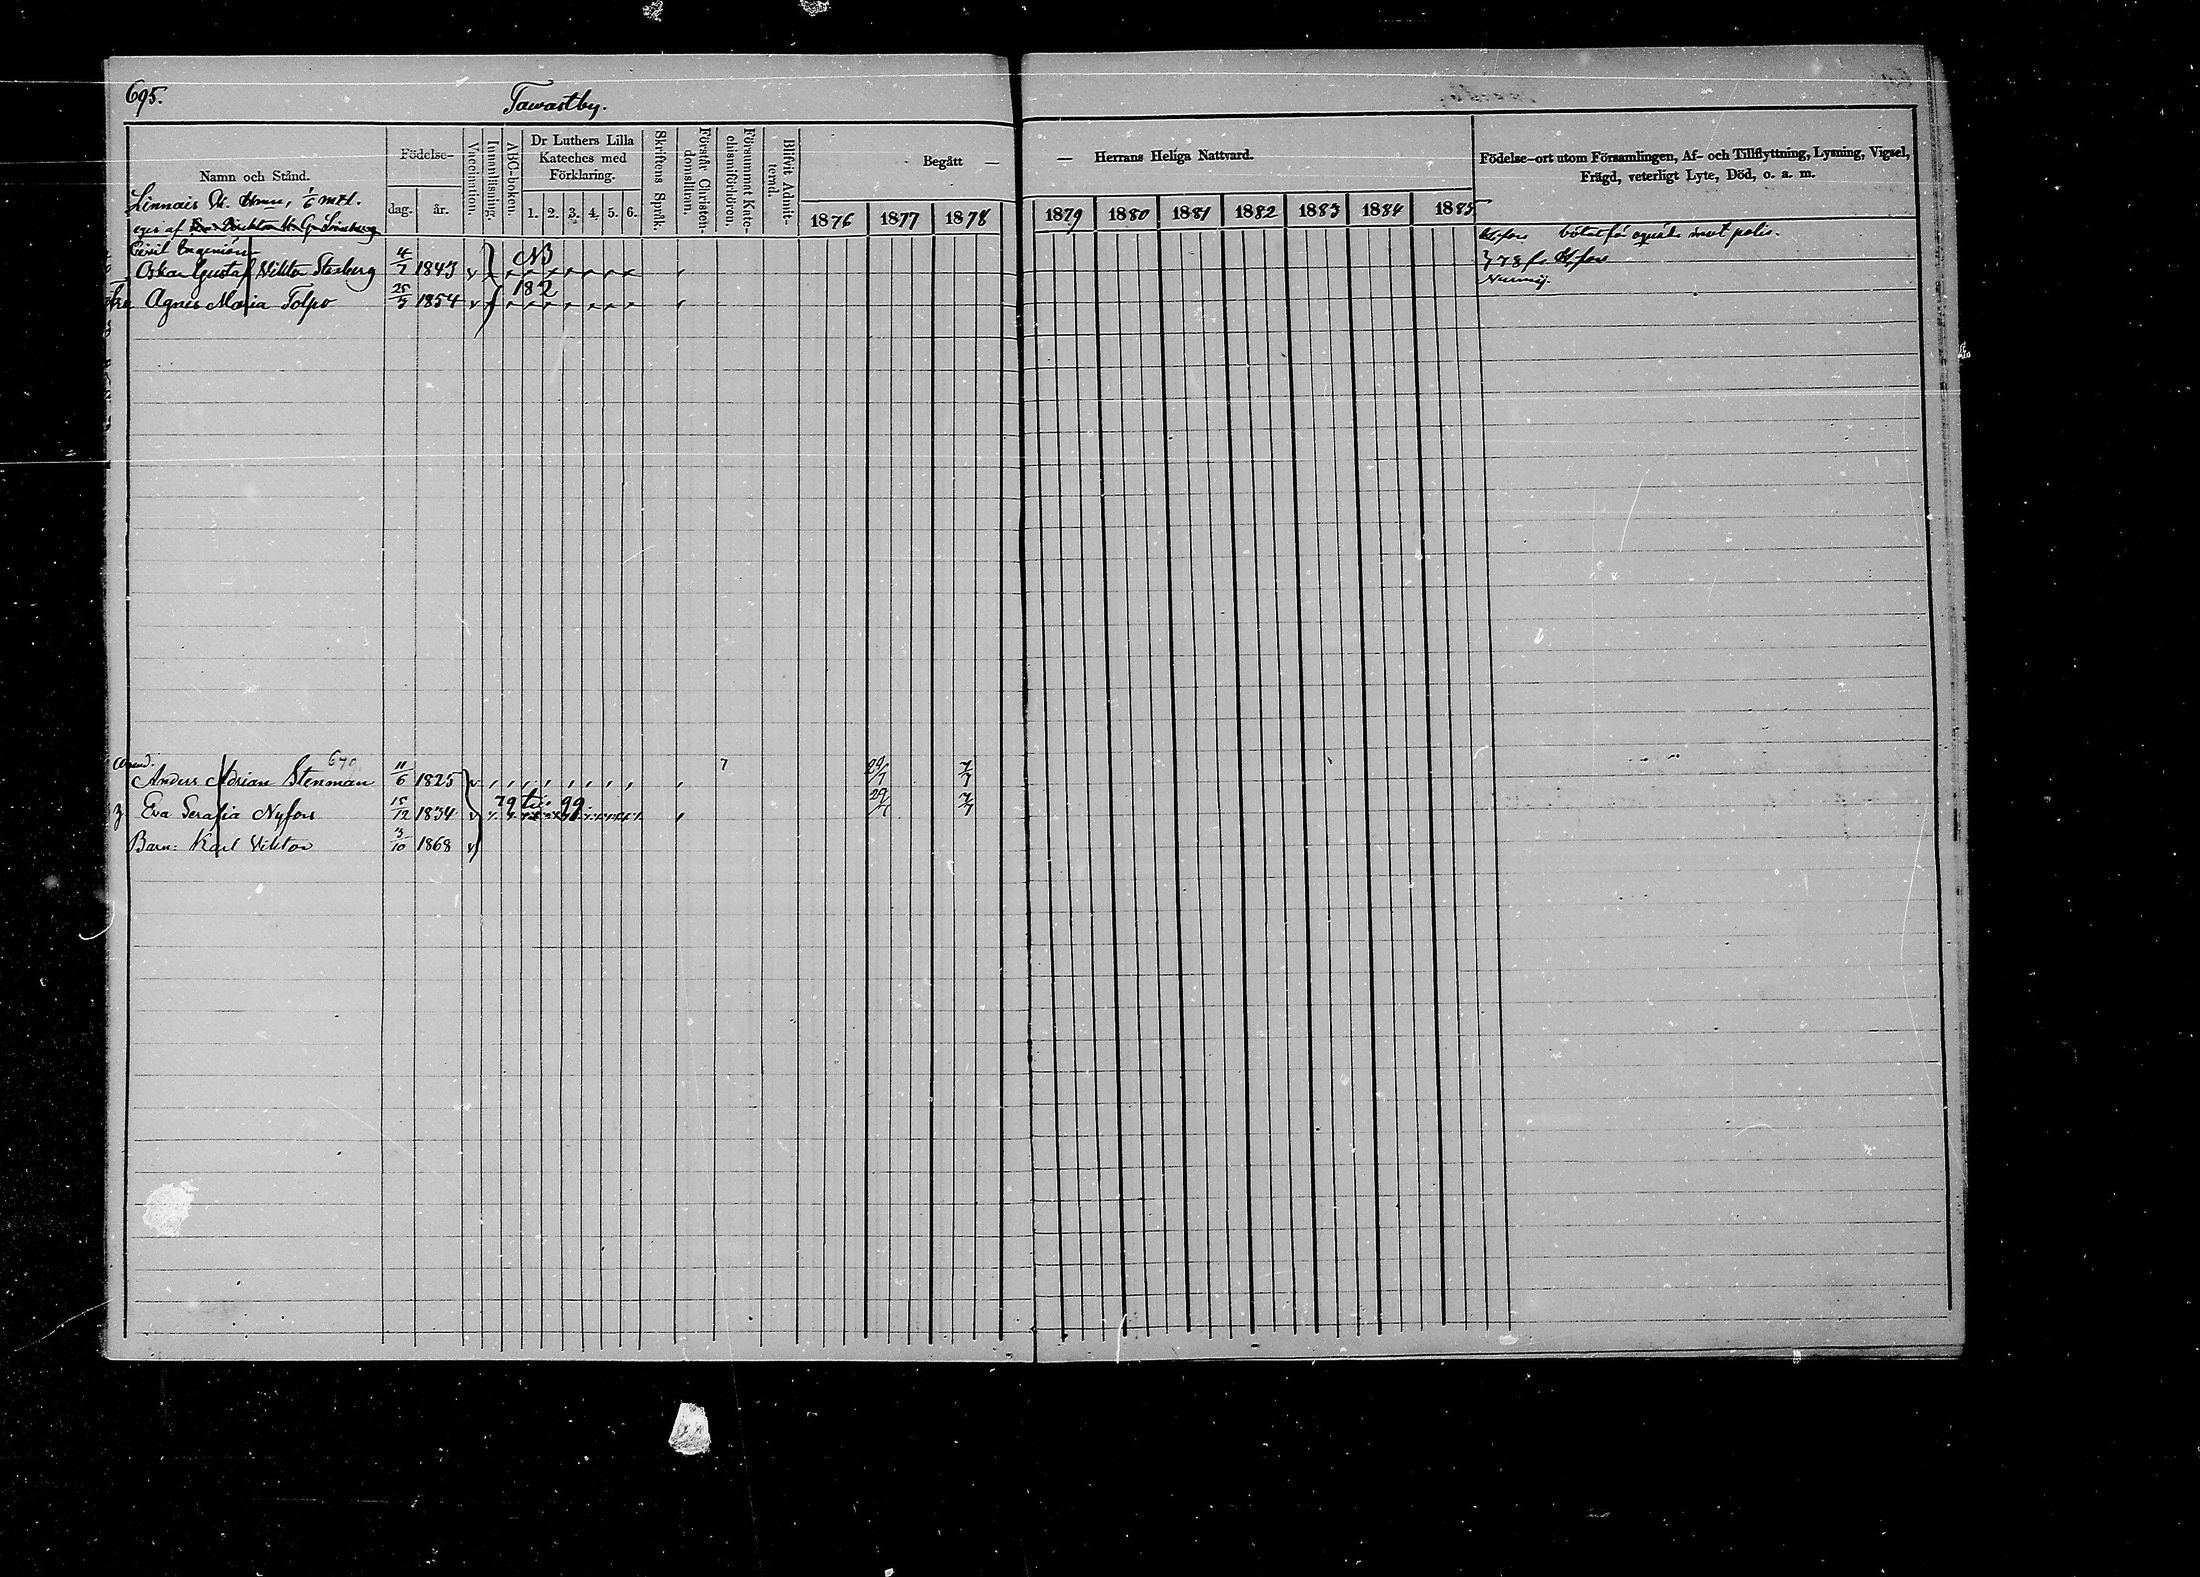 695.
Tawastby.
Namn och Stånd.
Födelse-
dag.
år.
Vaccination.
Innanläsning.
ABC-boken.
Dr Luthers Lilla
Kateches med
Förklaring.
1. 2. 3. 4. 5. 6.
Skriftens Språk.
Förstår Christen-
domsläran.
Försummat Kate-
chismiförhören.
Blifvit Admit-
terad.
Begått —
1876 1877 1878
— Herrans Heliga Nattvard.
1879 1880 1881 1882 1883 1884 1885
Födelse-ort utom Församlingen, Af- och Tillflyttning, Lysning, Vigsel,
Frägd, veterligt Lyte, Död, o. a. m.
Linnais
eges af
Civil Ingeniör
Oskar Gustaf Viktor Stenberg 4/7 1843 v NB
Agnes Maria Tolpo 25/3 1854 v 182
679
Anders Adrian Stenman 11/6 1825 v 7 29/7 7/7
79 99
Eva Serafia Nyfors 15/12 1834 v 29/7 7/7
Barn: Karl Viktor 3/10 1868 v